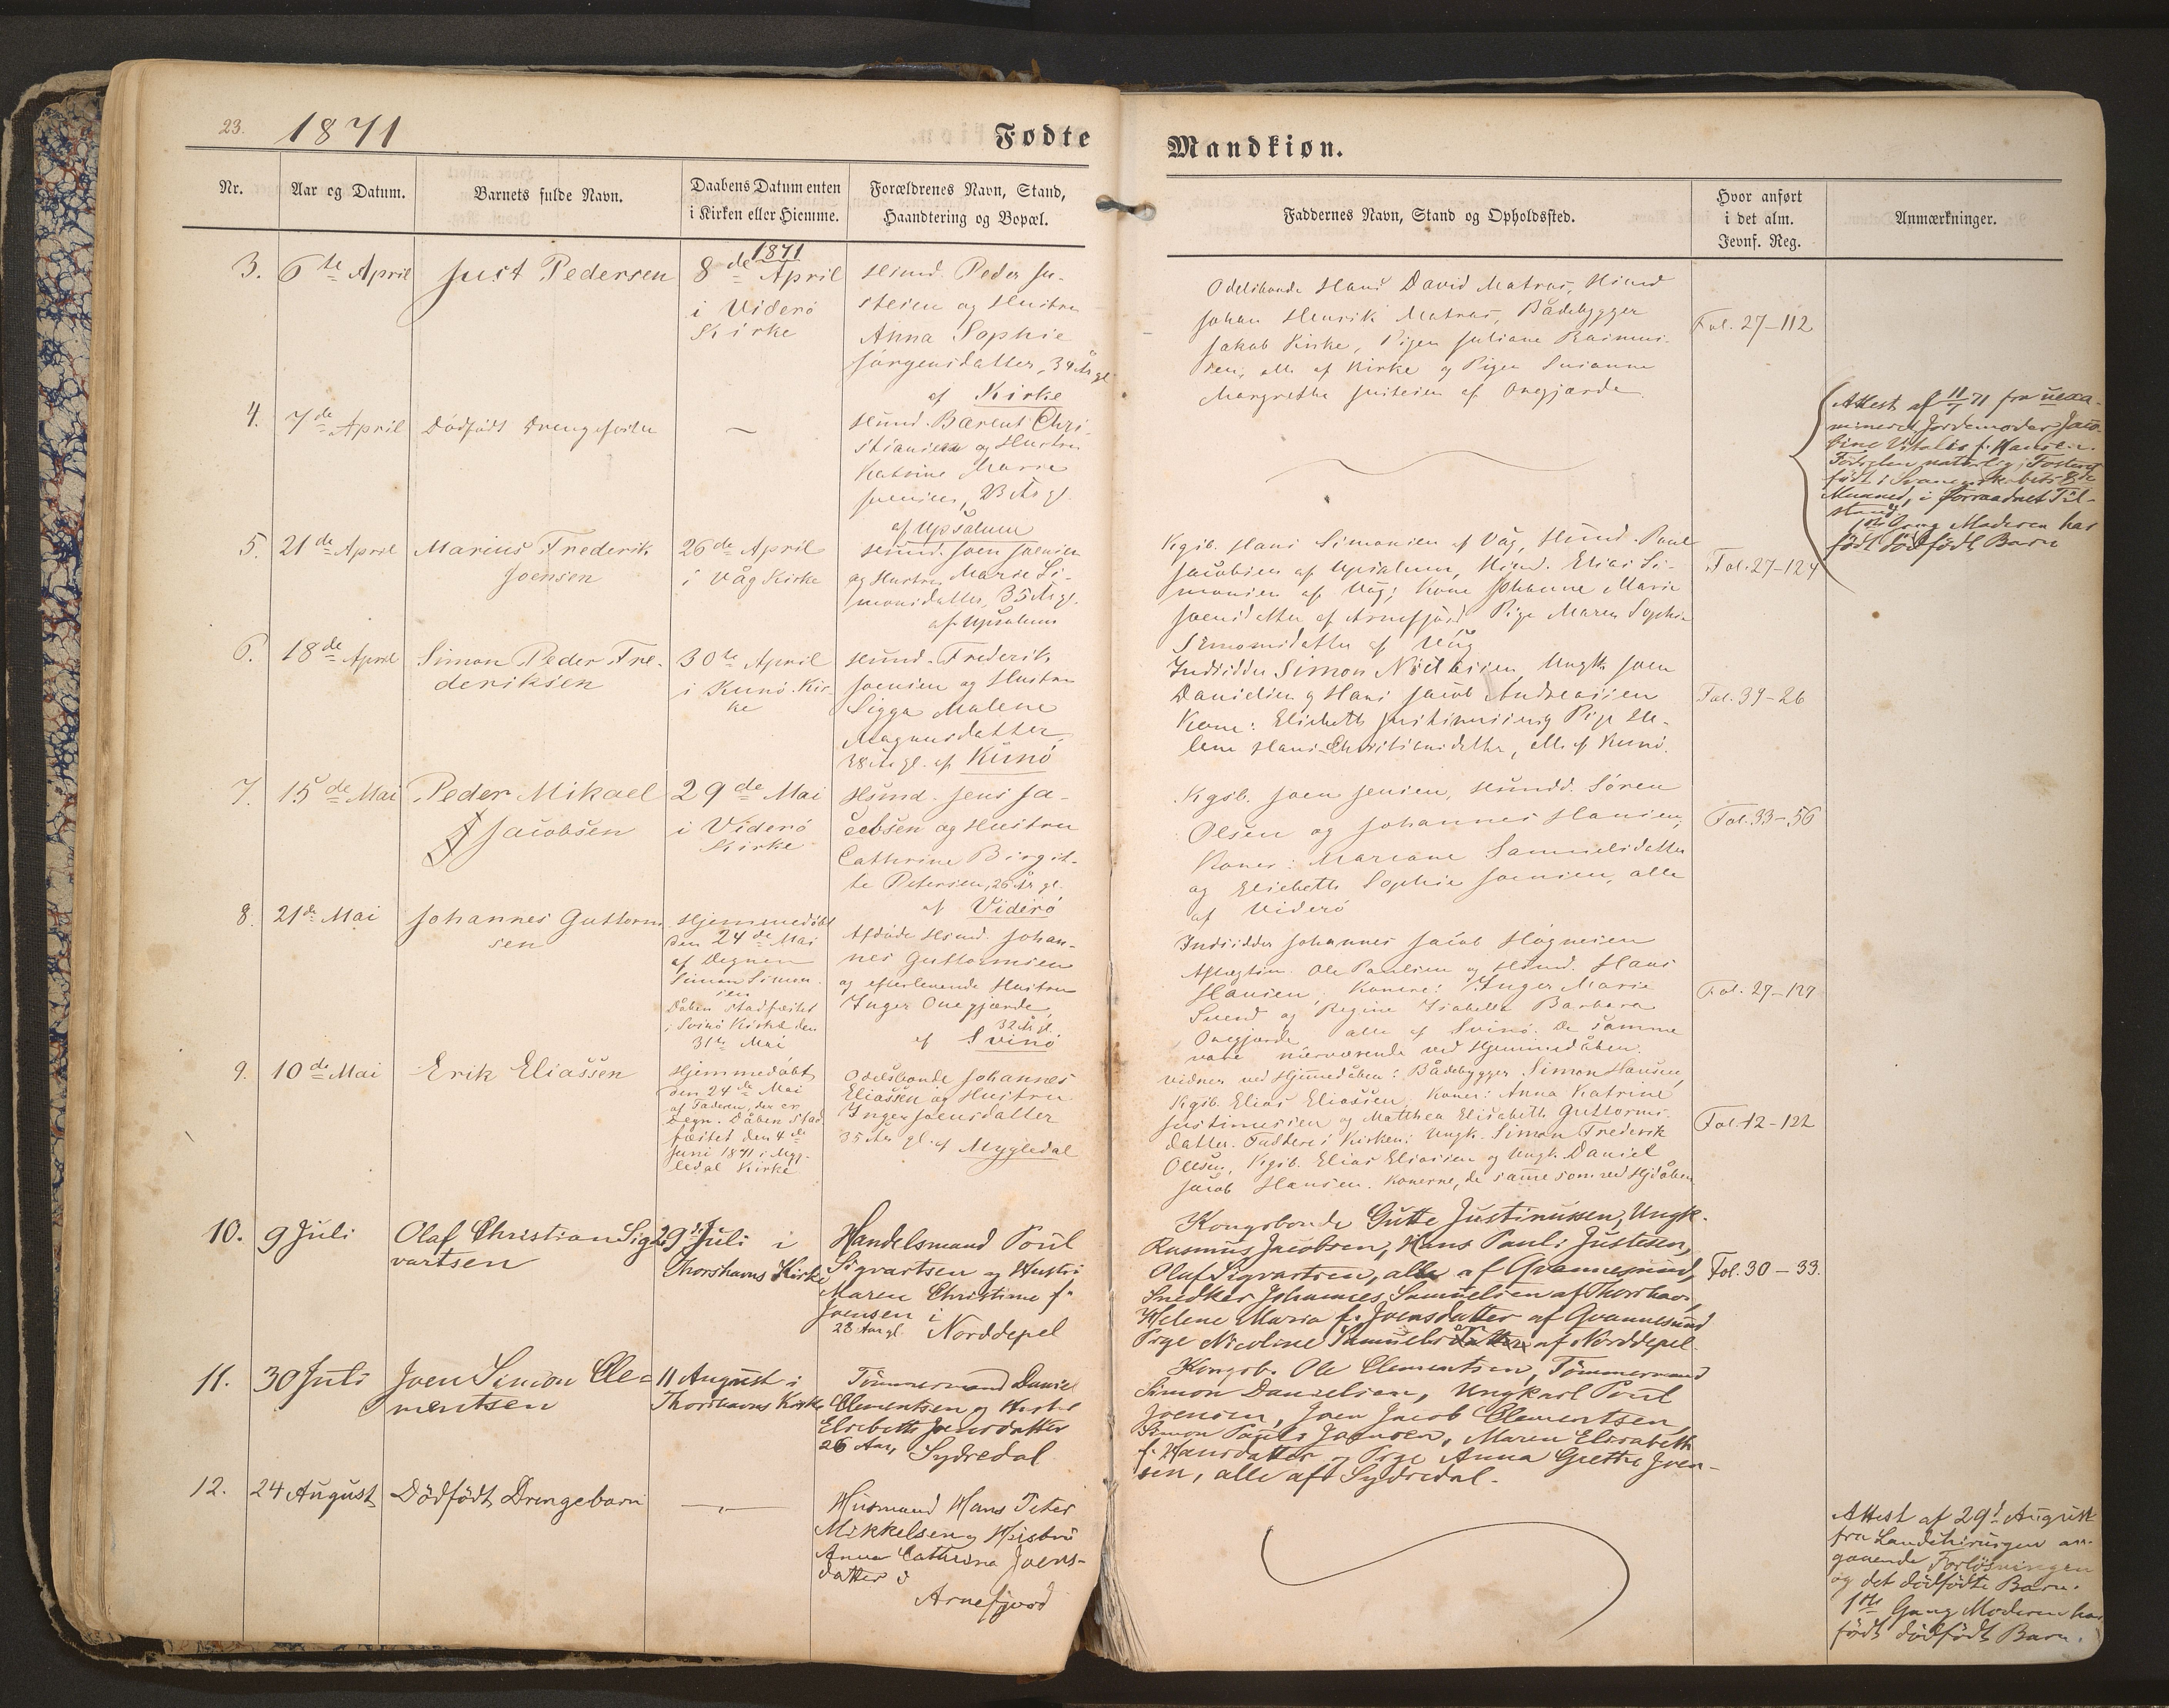 23.
1871
Fødte
Mandkiøn.
Nr.
Aar og Datum.
Barnets fulde Navn.
Daabens Datum enten
i Kirken eller Hiemme.
Forældrenes Navn, Stand,
Haandtering og Bopæl.
Faddernes Navn, Stand og Opholdssted.
Hvor anført
i det alm.
Jevnf. Reg.
Anmærkninger.
3.
6te April
Just Pedersen
1871
8de April
i Viderö
Kirke
Hsmd. Peder Ju-
stesen og Hustru
Anna Sophie
Jörgensdatter, 34 År gl.
af Kirke
Odelsbonde Hans David Matras, Hsmd
Johan Henrik Matras, Bådebygger
Jakob Kirke, Pigen Juliane Rasmus-
sen, alle af Kirke og Pigen Susanne
Margrethe Justesen af Onegjærde
Fol. 27-112
4.
7de April
Dödfödt Drengefoster
Hsmd. Bærent Chri-
stiansen og Hustru
Katrine Marie
Joensen, 23 År gl.
af Upsalum
Attest af 11/7 71 fra uexa-
mineret Jordemoder Jaco-
bine Vitalis f. Hansen.
Födslen naturlig; Fosteret
födt i Svangerskabets 8de
Maaned, i forraadnet Til-
stand.
1ste Gang Moderen har
födt dödfödt Barn
5.
21de April
Marius Frederik
Joensen
26de April
i Våg Kirke
Hsmd. Joen Joensen
og Hustru Marie Si-
monsdatter, 35 År gl.
af Upsalum
Kgsb. Hans Simonsen af Våg, Hsmd. Poul
Jacobsen af Upsalum, Hsmd. Elias Si-
monsen af Våg; Kone Johanne Marie
Joensdatter af Arnefjord Pige Maren Sophie
Simonsdatter af Våg
Fol. 27-124
6.
18de April
Simon Peder Fre-
deriksen
30te April
i Kunö Kir-
ke
Hsmd. Frederik
Joensen og Hustru
Sigga Malene
Magnusdatter,
38 År gl. af Kunö
Indsidder Simon Nicklasen, Ungk. Joen
Danielsen og Hans Jacob Andreasen
Kone: Elisbeth Justinussen og Pige He-
lene Hans-Christiansdatter, alle af Kunö.
Fol. 39-26
7.
15de Mai
Peder Mikael
Jacobsen
29de Mai
i Viderö
Kirke
Hsmd. Jens Ja-
cobsen og Hustru
Cathrine Birgit-
te Petersen, 26 År gl.
af Viderö
Kgsb. Joen Jensen, Husmd. Sören
Olsen og Johannes Hansen,
Koner: Mariane Samuelsdatter
og Elisbeth Sophie Joensen, alle
af Viderö
Fol. 33-56
8.
21de Mai
Johannes Guttorm-
sen
Hjemmedöbt
den 24de Mai
af Degnen
Simon Simon-
sen
Dåben stadfæstet
i Svinö Kirke den
31te Mai
Afdöde Hsmd. Johan-
nes Guttormsen
og efterlevende Hustru
Inger Onegjærde,
32 År gl.
af Svinö
Indsidder Johannes Jacob Högnesen
Aftægtsm. Ole Poulsen og Hsmd. Hans
Hansen, Konerne: Inger Marie
Svend og Regine Isabella Barbara
Onegjærde alle af Svinö. De samme
vare nærværende ved Hjemmedåben.
Fol. 27-127
9.
10de Mai
Erik Eliassen
Hjemmedöbt
den 24de Mai
af Faderen, der er
Degn. Dåben Stad-
fæstet den 4de
Juni 1871 i Myg-
ledal Kirke
Odelsbonde Johannes
Eliassen og Hustru
Inger Joensdatter
35 År gl. af Mygledal
Vidner ved Hjemmedåben: Bådebygger Simon Hansen,
Kgsb. Elias Eliassen, Koner: Anna Katrine
Justinussen og Matthea Elisabeth Guttorms-
datter. Faddere i Kirken: Ungk. Simon Frederik
Olsen, Kgsb. Elias Eliassen og Ungk. Daniel
Jacob Hansen. Konerne, de samme som ved Hjdåben
Fol. 12-122
10.
9 Juli
Olaf Christian Sig-
vartsen
29de Juli i
Thorshavns Kirke
Handelsmand Poul
Sigvartsen og Hustru
Maren Christine f.
Joensen i
28 Aar gl. Norddepel
Kongsbonde Gutte Justinussen, Ungk.
Rasmus Jacobsen, Hans Pauli Justesen,
Olaf Sigvartsen, alle af Qvannesund,
Snedker Johannes Samuelsen af Thorshavn,
Helene Maria f. Joensdatter af Qvannesund
Pige Nicoline Samuelsdatter af Norddepel.
Fol. 30-33.
11.
30 Juli
Joen Simon Cle-
mentsen
11 August i
Thorshavns Kirke
Tömmermand Daniel
Clementsen og Hustru
Elsebeth Joensdatter
26 Aar, Sydredal
Kongsb. Ole Clementsen, Tömmermand
Simon Danielsen, Ungkarl Poul
Joensen, Joen Jacob Clementsen,
Simon Pauli Joensen, Maren Elisabeth
f. Hansdatter og Pige Anna Grethe Joen-
sen, alle af Sydredal.
12.
24 August
Dödfödt Drengebarn
Husmand Hans Peter
Mikkelsen og Hustru
Anna Cathrina Joens-
datter i
Arnefjord
Attest af 29d August
fra Landchirurgen an-
gaaende Forlösningen
og det dödfödte Barn.
1ste Gang Moderen har
födt dödfödt Barn.